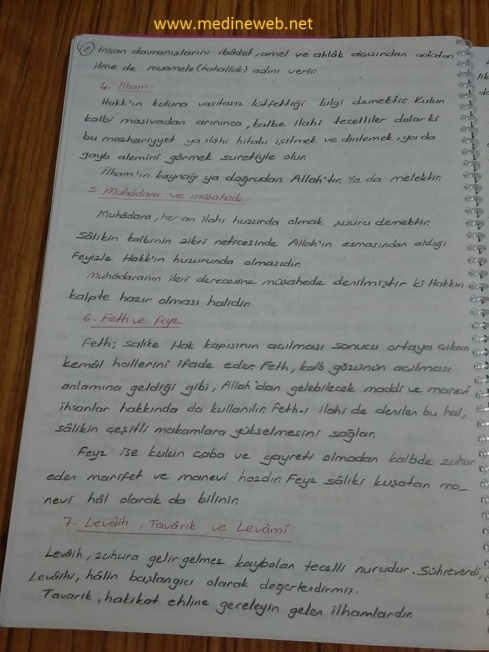 www.medineweb.net
insan davranışlarını ibadet, amel ve ahlâk açısından anlatan
ilme de muamele (tahalluk) adını verir.
4- İlham
Hakk'ın kuluna vasıtasız lütfettiği bilgi demektir. Kulun
kalbi masivadan arınınca, kalbe ilahi tecelliler dolar ki
bu mazhariyyet ya ilâhi hitabı işitmek ve dinlemek, ya da
gayb alemini görmek suretiyle olur.
İlham'ın kaynağı ya doğrudan Allah'tır. Ya da melektir.
5. Muhâdara ve müşahede
Muhâdara, her an ilahi huzurda olmak şuuru demektir.
Sâlikin kalbinin zikri neticesinde Allah'ın esmasından aldığı
feyizle Hakk'ın huzurunda olmasıdır.
Muhâdaranın ileri derecesine müşahede denilmiştir ki Hakkın
kalpte hazır olması halidir.
6- Feth ve feyz
Feth; salike Hak kapısının açılması sonucu ortaya çıkan
kemâl hallerini ifade eder. Feth, kalb gözünün açılması
anlamına geldiği gibi, Allah'dan gelebilecek maddi ve manevi
ihsanlar hakkında da kullanılır. Feth-i ilahi de denilen bu hal,
sâlikin çeşitli makamlara yükselmesini sağlar.
Feyz ise kulun çaba ve gayreti olmadan kalbde zuhur
eden marifet ve manevi hazdır. Feyz sâliki kuşatan ma-
nevi hâl olarak da bilinir.
7- Levâih, Tavârık ve Levâmi
Levâih, zuhura gelir gelmez kaybolan tecelli nurudur. Sühreverdi,
Levâihi, hâlin başlangıcı olarak değerlendirmiş.
Tavarık, hakikat ehline geceleyin gelen ilhamlardır.